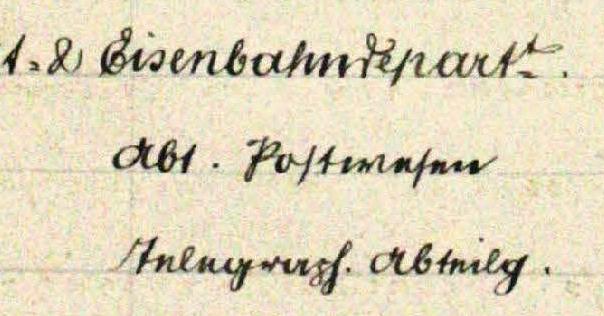 t- & Eisenbahndepartt.
Abt. Postwesen
Telegraph. Abteilg.